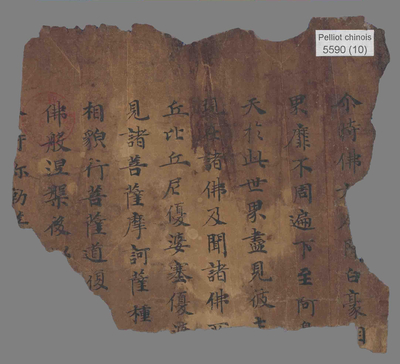 Pelliot chinois
5590 (10)
尒時佛白豪相
界靡不周遍下至阿
天於此世界盡見彼土
現在諸佛及聞諸佛
丘比丘尼優婆塞優婆
見諸菩薩摩訶薩種
相貌行菩薩道復
佛般涅槃後
尒時弥勒